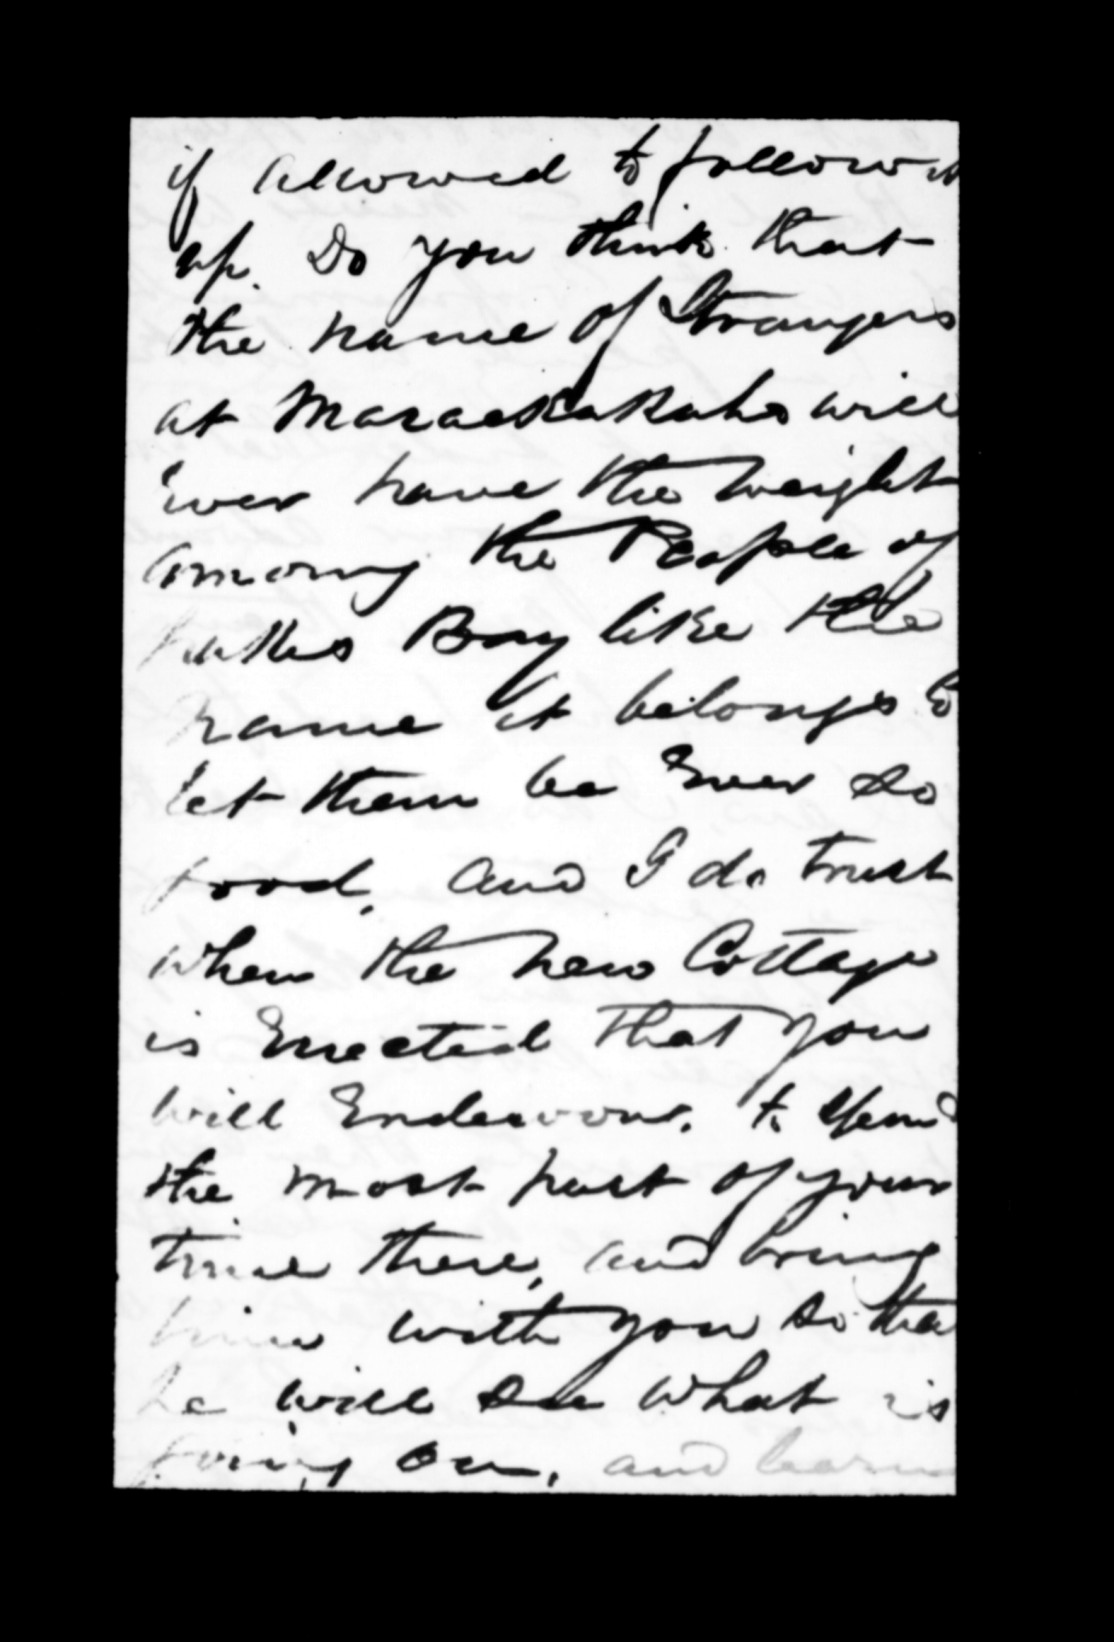 if allowed to follow it
up. Do you think that
the name of Strangers
at Maraekakaho will
Ever have the weight
among the People of
Hawkes Bay like the
name it belongs to
let them be Ever so
good, and I do trust
when the new Cottage
is Erected that you
will Endeavour. to spend
the most part of your
time there, and bring
him with you so that
he will see what is
going on, and learn